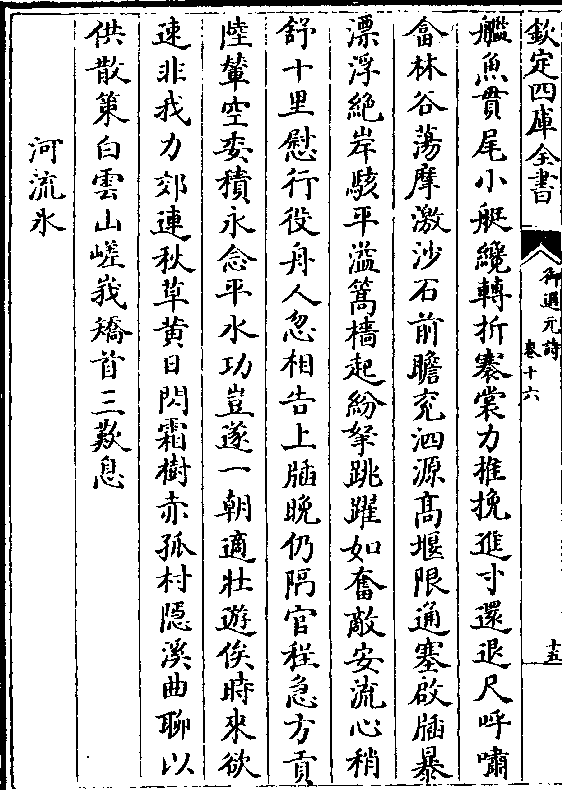 欽定四庫全書
御選元詩 卷十六
十五
艦魚貫尾小艇纔轉折褰裳力推挽進寸還退尺呼嘯
畣林谷蕩摩激沙石前瞻兖泗源髙堰限通塞啟牐暴
漂浮絶岸駭平溢篙檣起紛拏跳躍如奮敵安流心稍
舒十里慰行役舟人忽相告上牐晚仍隔官程急方貢
陸輦空委積永念平水功豈遂一朝適壯遊俟時來欲
速非我力郊連秋草黄日閃霜樹赤孤村隠溪曲聊以
供散策白雲山嵯峩矯首三歎息
河流氷